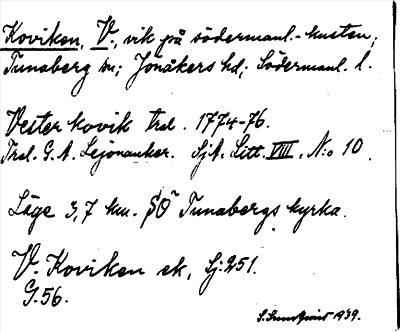 Koviken, V., vik på södermanl.-kusten;
Tunaberg sn; Jönåkers hd; Södermanl. l.
Vester kovik trol. 1774-76.
Trol. G. A. Lejonanker. Sjk. Litt. VIII. N:o 10.
Läge 3,7 km. SO Tunabergs kyrka.
V. Koviken ek, Sj. 251.
G.56.
S. Sundqvist 1939.